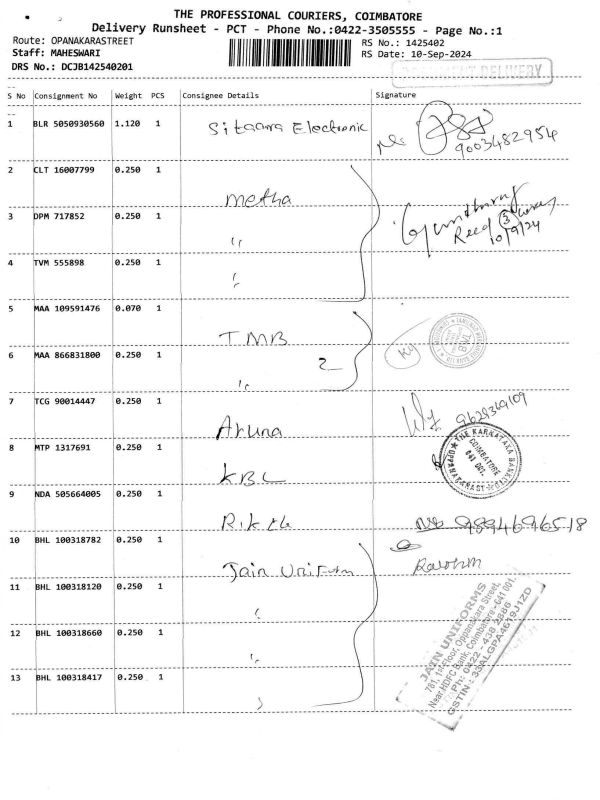 THE PROFESSIONAL COURIERS, COIMBATORE
Delivery Runsheet - PCT - Phone No.:0422-3505555 - Page No.:1
Route: OPANAKARASTREET
RS No.: 1425402
Staff: MAHESWARI
RS Date: 10-Sep-2024
DRS No.: DCJB142540201
DOCUMENT DELIVERY
S No Consignment No Weight PCS Consignee Details Signature
1 BLR 5050930560 1.120 1 Sitaara Electronic
9003482954
2 CLT 16007799 0.250 1 Metha
3 DPM 717852 0.250 1 "
Recd 3
10/9/24
4 TVM 555898 0.250 1 "
5 MAA 109591476 0.070 1 TMB
6 MAA 866831800 0.250 1 " 2
7 TCG 90014447 0.250 1 Aruna 9629369109
8 MTP 1317691 0.250 1 KBL
THE KARNATAKA BANK LTD
COIMBATORE
641 001.
OPPANAKARA ST
9 NDA 505664005 0.250 1
9894696518
10 BHL 100318782 0.250 1 Jain Uniform
11 BHL 100318120 0.250 1 "
12 BHL 100318660 0.250 1 "
13 BHL 100318417 0.250 1 "
JAIN UNIFORMS
781, 1st Floor, Oppanakara Street,
Near HDFC Bank, Coimbatore - 641 001.
Ph: 0422 - 438 2886
GSTIN : 33ALGPA4619J1ZD